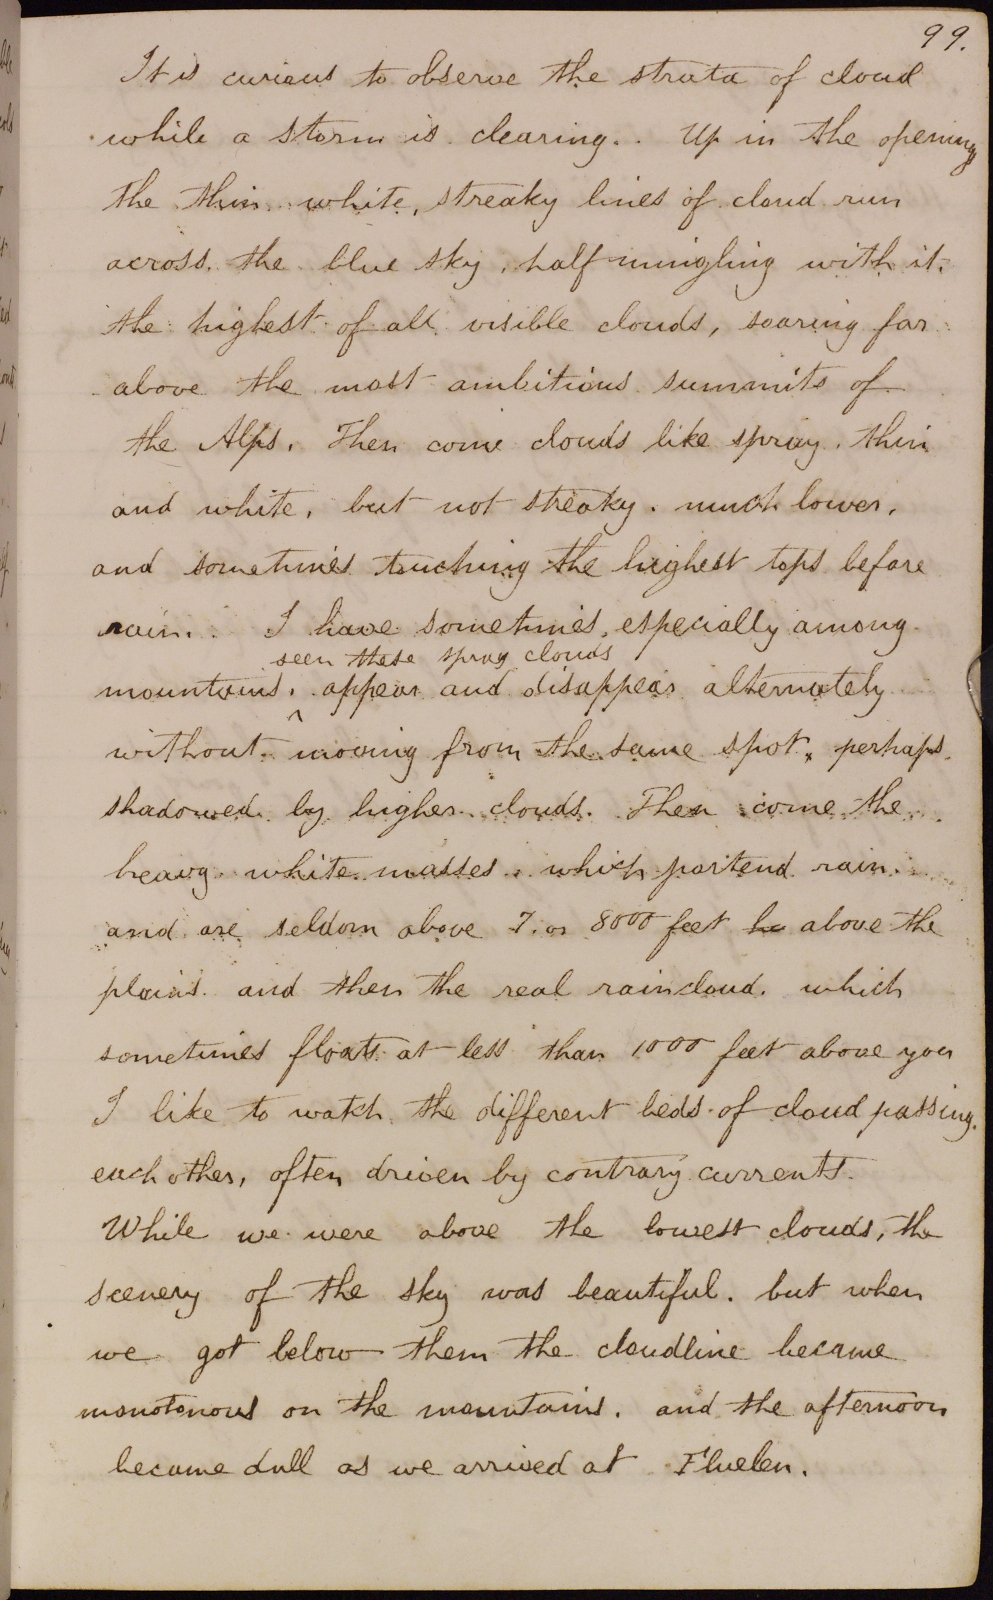 99.
It is curious to observe the strata of cloud
while a storm is clearing. . Up in the opening
the thin white, streaky lines of cloud run
across. the blue sky, half mingling with it.
the highest of all visible clouds, soaring far
above the most ambitious summits of
the Alps. Then come clouds like spray, thin
and white, but not streaky. much lower,
and sometimes touching the highest tops before
rain. I have sometimes, especially among
seen these spray clouds
mountains, appear and disappear alternately
without ^ moving from the same spot, perhaps
shadowed by higher clouds. Then come the
heavy white masses, which portend rain.
and are seldom above 7. or 8000 feet he above the
plains. and then the real raincloud. which
sometimes floats at less than 1000 feet above you
I like to watch the different beds of cloud passing
each other, often driven by contrary currents.
While we were above the lowest clouds, the
scenery of the sky was beautiful. but when
we got below them the cloudline became
monotonous on the mountains. and the afternoon
became dull as we arrived at Fluelen.